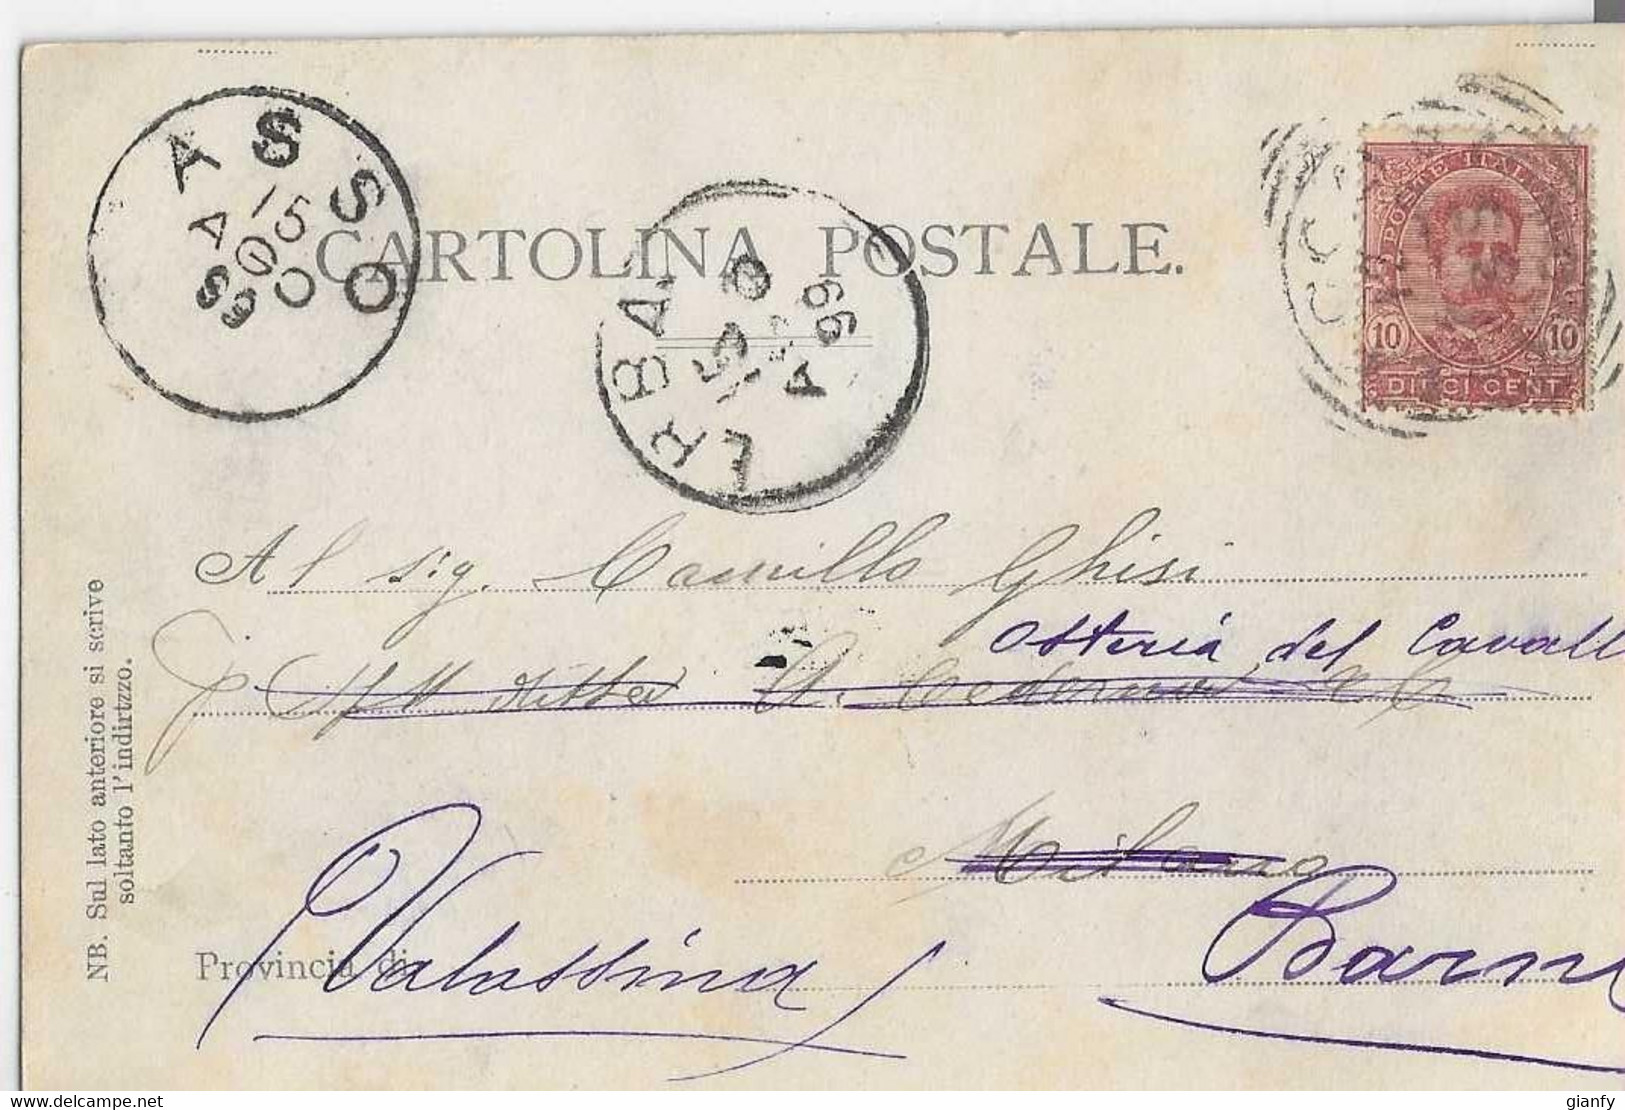 CARTOLINA POSTALE.
ASSO
15 AGO 99
ERBA
15 99
POSTE ITALIANE
10 10
DIECI CENT
Al sig. Camillo Ghisi
Osteria del Cavall
Ditta
Milano
Barni
Provincia di Valassina
NB. Sul lato anteriore si scrive
soltanto l'indirizzo.
www.delcampe.net
gianfy